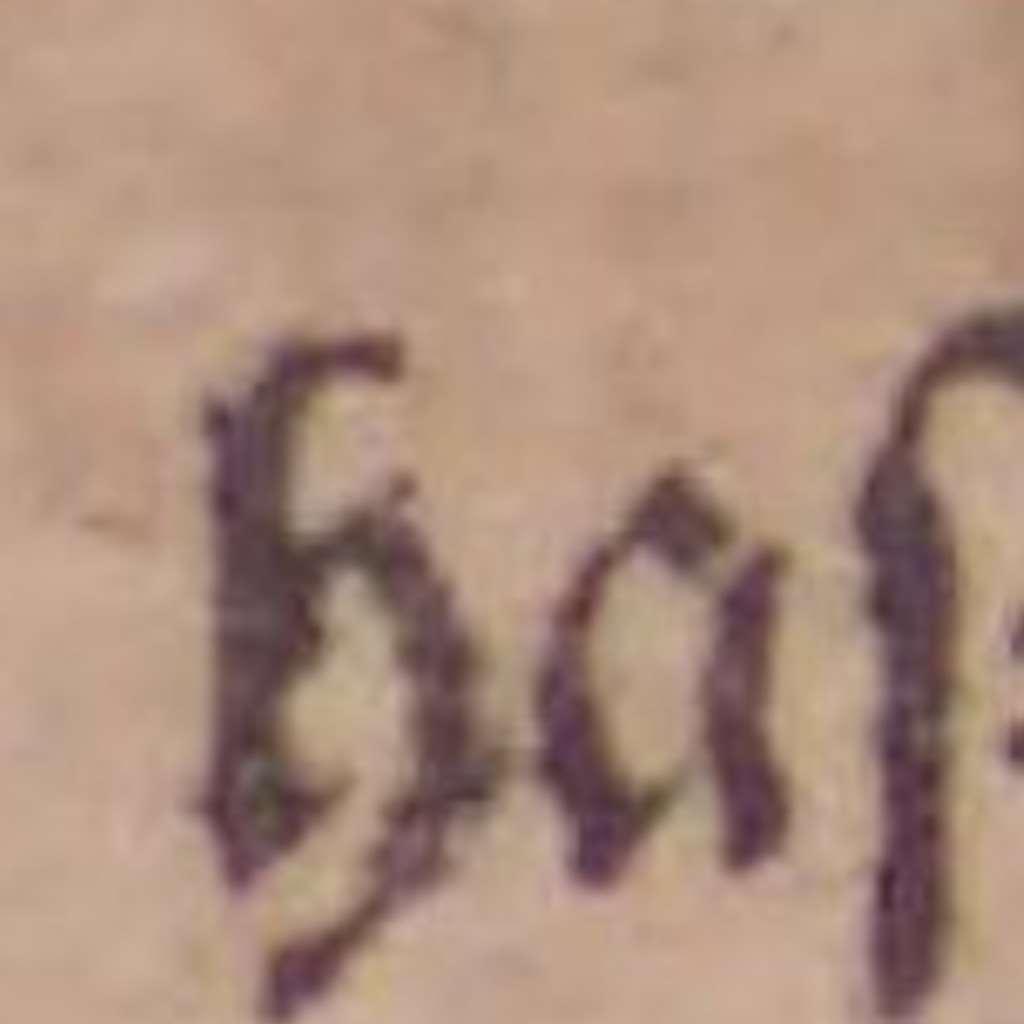 haſ